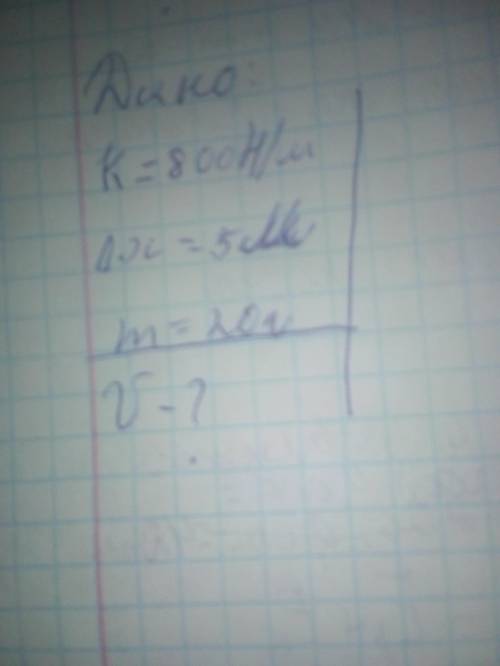 Дано:
K = 800 Н/м
Δx = 5 см
m = 20г
V - ?